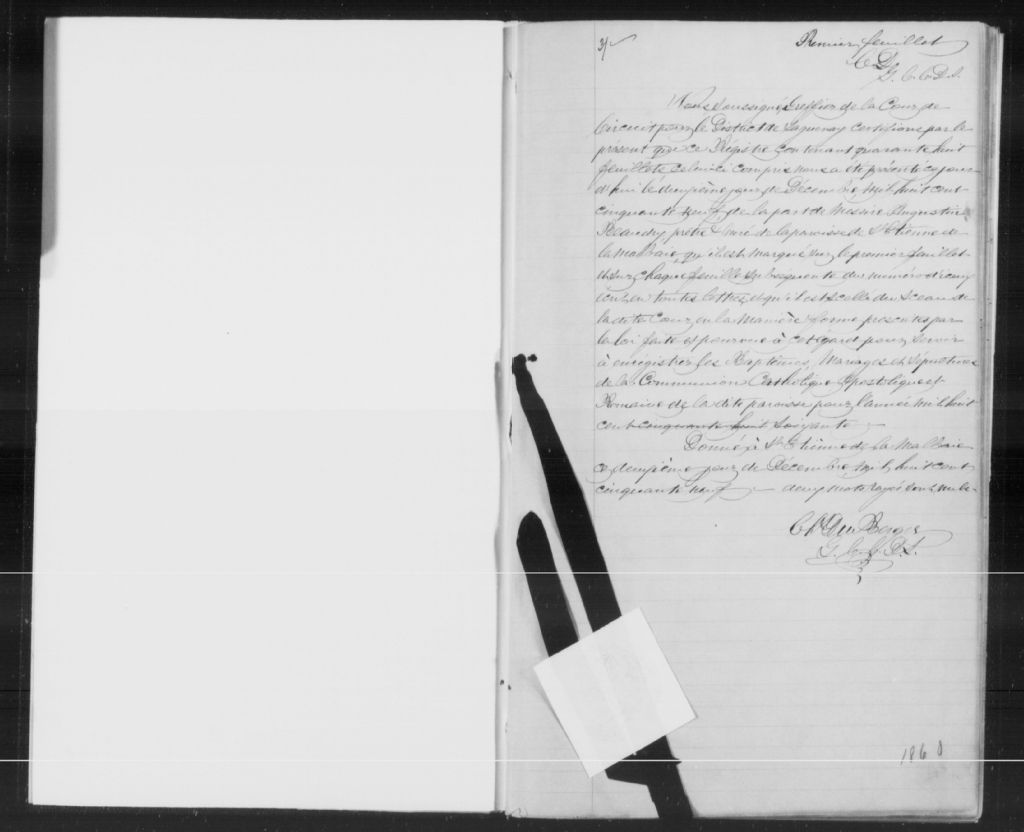 3/
Premier feuillet
C. D.
G. C. C. D. S.
Nous Soussigné, Greffier de la Cour de
Circuit pour le District de Saguenay certifions par le
présent que ce Régistre contenant quarante huit
feuillets celui ci compris nous a été présenté ce jour
d'hui le deuxième jour de Décembre Mil huit cent
cinquante neuf, de la part de Messire Augustin
Beaudry prêtre & curé de la paroisse de St Etienne de
la Malbaie qu'il est marqué sur le premier feuillet
et sur chaque feuillet subséquents du numéro d'iceux
écrit en toutes lettres et qu'il est scellé du Sceau de
la dite Cour en la Manière & forme prescrites par
la loi faite et pourvue à cet égard pour servir
à enregistrer les Baptêmes, Mariages et Sépultures
de la Communion Catholique Apostolique et
Romaine de la dite paroisse pour l'année mil huit
cent cinquante huit Soixante
Donné à St Etienne de la Malbaie
ce deuxième jour de Décembre Mil huit cent
cinquante neuf deux mots rayés sont nuls
Chs Du Berger
G. C. C. D. S.
1860